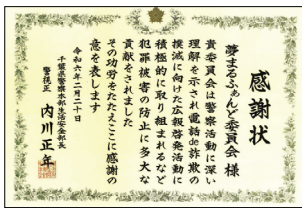 感謝状
夢まるふぁんど委員会 様
貴委員会は警察活動に深い
理解を示され電話de詐欺の
撲滅に向けた広報啓発活動に
積極的に取り組まれるなど
犯罪被害の防止に多大な
貢献をされました
その功労をたたえここに感謝の
意を表します
令和六年二月二十日
千葉県警察本部生活安全部長
警視正 内川正年